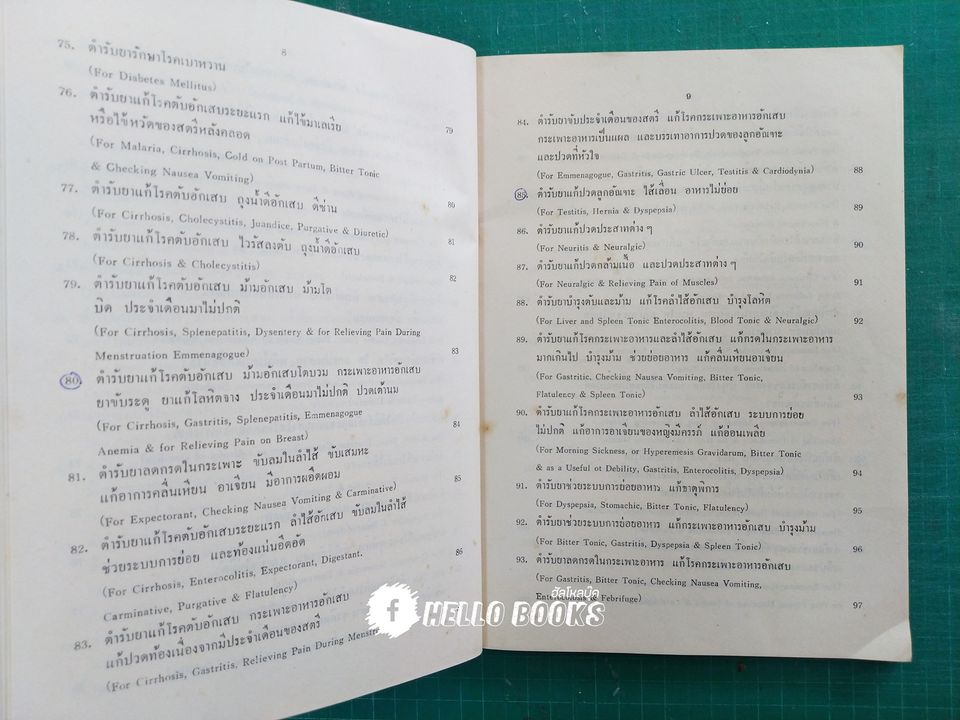 8
75. ตำรับยารักษาโรคเบาหวาน
(For Diabetes Mellitus)
76. ตำรับยาแก้โรคตับอักเสบระยะแรก แก้ไข้มาเลเรีย
หรือไข้หวัดของสตรีหลังคลอด 79
(For Malaria, Cirrhosis, Cold on Post Partum, Bitter Tonic
& Checking Nausea Vomiting)
77. ตำรับยาแก้โรคตับอักเสบ ถุงน้ำดีอักเสบ ดีซ่าน 80
(For Cirrhosis, Cholecystitis, Juandice, Purgative & Diuretic)
78. ตำรับยาแก้โรคตับอักเสบ ไวรัสลงตับ ถุงน้ำดีอักเสบ 81
(For Cirrhosis & Cholecystitis)
79. ตำรับยาแก้โรคตับอักเสบ ม้ามอักเสบ ม้ามโต 82
บิด ประจำเดือนมาไม่ปกติ
(For Cirrhosis, Splenepatitis, Dysentery & for Relieving Pain During
Menstruation Emmenagogue) 83
80. ตำรับยาแก้โรคตับอักเสบ ม้ามอักเสบโตบวม กระเพาะอาหารอักเสบ
ยาขับระดู ยาแก้โลหิตจาง ประจำเดือนมาไม่ปกติ ปวดเต้านม
(For Cirrhosis, Gastritis, Splenepatitis, Emmenagogue
Anemia & for Relieving Pain on Breast) 84
81. ตำรับยาลดกรดในกระเพาะ ขับลมในลำไส้ ขับเสมหะ
แก้อาการคลื่นเหียน อาเจียน มีอาการผอืดผอม 85
(For Expectorant, Checking Nausea Vomiting & Carminative)
82. ตำรับยาแก้โรคตับอักเสบระยะแรก ลำไส้อักเสบ ขับลมในลำไส้
ช่วยระบบการย่อย และท้องแน่นอืดอัด
(For Cirrhosis, Enterocolitis, Expectorant, Digestant, 86
Carminative, Purgative & Flatulency)
83. ตำรับยาแก้โรคตับอักเสบ กระเพาะอาหารอักเสบ
แก้ปวดท้องเนื่องจากมีประจำเดือนของสตรี
(For Cirrhosis, Gastritis, Relieving Pain During
9
84. ตำรับยาขับประจำเดือนของสตรี แก้โรคกระเพาะอาหารอักเสบ
กระเพาะอาหารเป็นแผล และบรรเทาอาการปวดของลูกอัณฑะ
และปวดที่หัวใจ
(For Emmenagogue, Gastritis, Gastric Ulcer, Testitis & Cardiodynia) 88
85. ตำรับยาแก้ปวดลูกอัณฑะ ไส้เลื่อน อาหารไม่ย่อย
(For Testitis, Hernia & Dyspepsia) 89
86. ตำรับยาแก้ปวดประสาทต่าง ๆ
(For Neuritis & Neuralgic) 90
87. ตำรับยาแก้ปวดกล้ามเนื้อ และปวดประสาทต่าง ๆ
(For Neuralgic & Relieving Pain of Muscles) 91
88. ตำรับยาบำรุงตับและม้าม แก้โรคลำไส้อักเสบ บำรุงโลหิต
(For Liver and Spleen Tonic Enterocolitis, Blood Tonic & Neuralgic) 92
89. ตำรับยาแก้โรคกระเพาะอาหารและลำไส้อักเสบ แก้กรดในกระเพาะอาหาร
มากเกินไป บำรุงม้าม ช่วยย่อยอาหาร แก้คลื่นเหียนอาเจียน
(For Gastritic, Checking Nausea Vomiting, Bitter Tonic,
Flatulency & Spleen Tonic) 93
90. ตำรับยาแก้โรคกระเพาะอาหารอักเสบ ลำไส้อักเสบ ระบบการย่อย
ไม่ปกติ แก้อาการอาเจียนของหญิงมีครรภ์ แก้อ่อนเพลีย
(For Morning Sickness, or Hyperemesis Gravidarum, Bitter Tonic
& as a Useful ot Debility, Gastritis, Enterocolitis, Dyspepsia) 94
91. ตำรับยาช่วยระบบการย่อยอาหาร แก้ธาตุพิการ
(For Dyspepsia, Stomachic, Bitter Tonic, Flatulency) 95
92. ตำรับยาช่วยระบบการย่อยอาหาร แก้กระเพาะอาหารอักเสบ บำรุงม้าม
(For Bitter Tonic, Gastritis, Dyspepsia & Spleen Tonic) 96
93. ตำรับยาลดกรดในกระเพาะอาหาร แก้โรคกระเพาะอาหารอักเสบ
(For Gastritis, Bitter Tonic, Checking Nausea Vomiting,
& Febrifuge) 97
ฮัลโหลบุ๊ค
f HELLO BOOKS